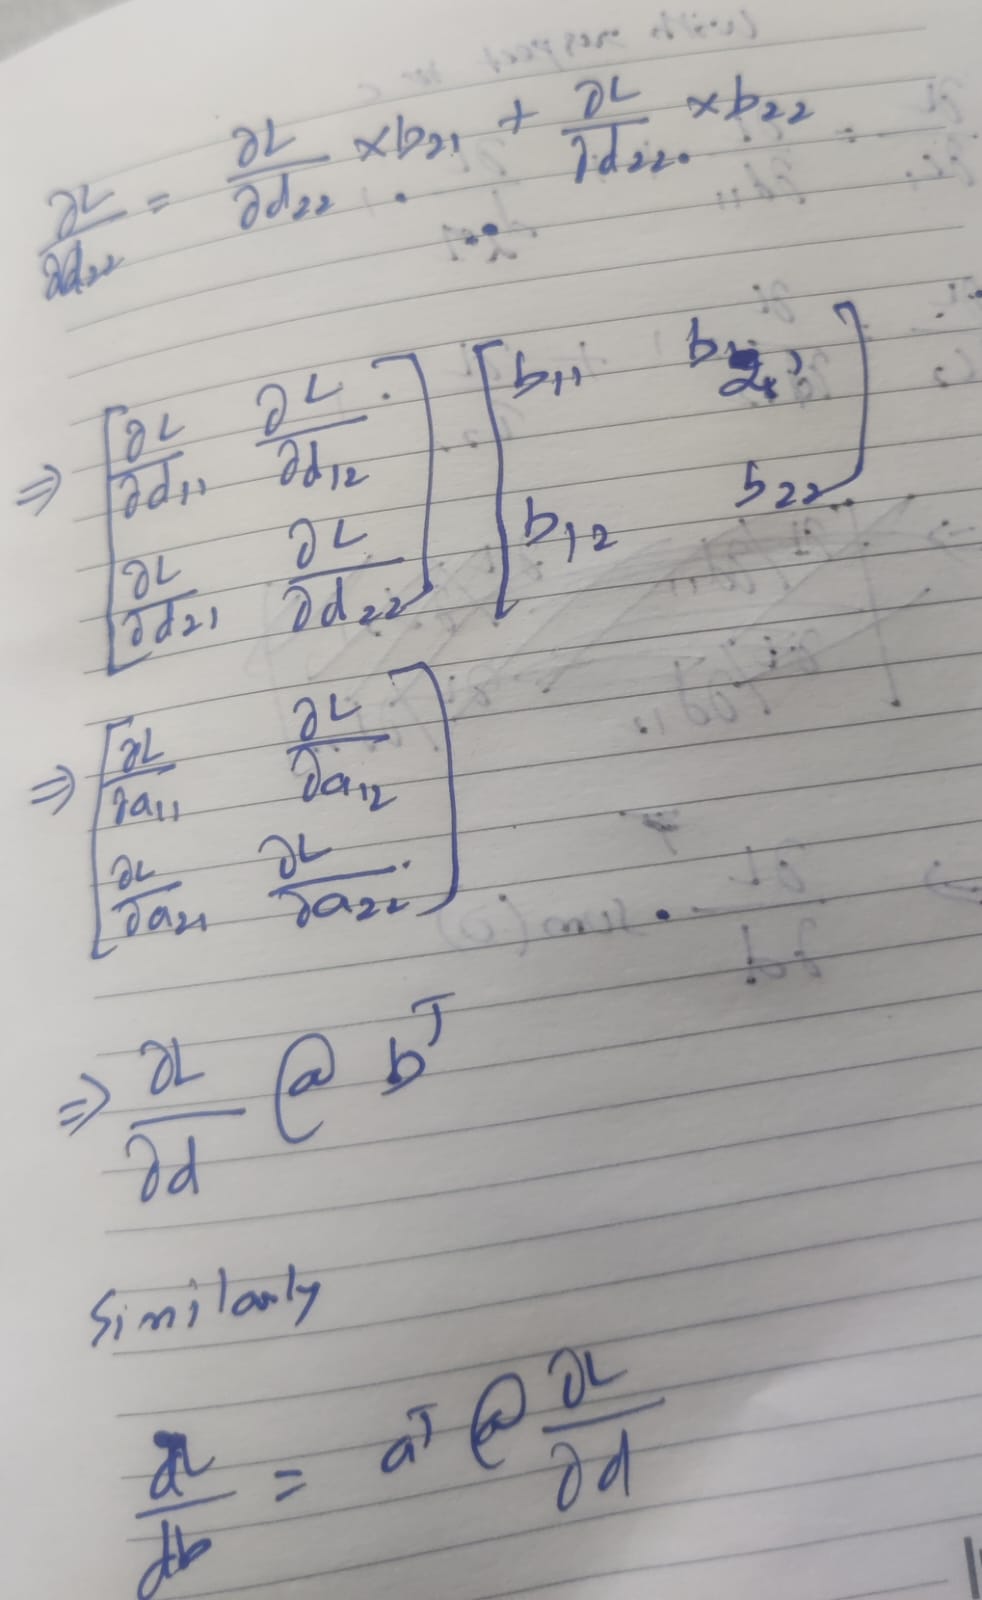 ∂L/∂d22 = ∂L/∂d22 × b21 + ∂L/∂d22 × b22
⇒ [∂L/∂d11 ∂L/∂d12 ; ∂L/∂d21 ∂L/∂d22] [b11 b21 ; b12 b22]
⇒ [∂L/∂a11 ∂L/∂a12 ; ∂L/∂a21 ∂L/∂a22]
⇒ ∂L/∂d @ bᵀ
Similarly
∂L/db = aᵀ @ ∂L/∂d